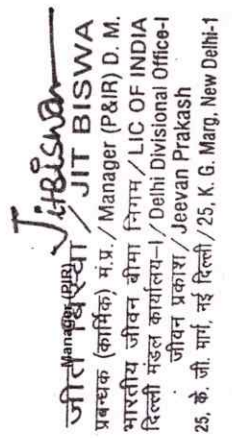 JitBiswas
Manager (P&IR)
जीत बिस्वा / JIT BISWA
प्रबन्धक (कार्मिक) मं.प्र. / Manager (P&IR) D. M.
भारतीय जीवन बीमा निगम / LIC OF INDIA
दिल्ली मंडल कार्यालय–I / Delhi Divisional Office-I
जीवन प्रकाश / Jeevan Prakash
25, के. जी. मार्ग, नई दिल्ली / 25, K. G. Marg, New Delhi-1